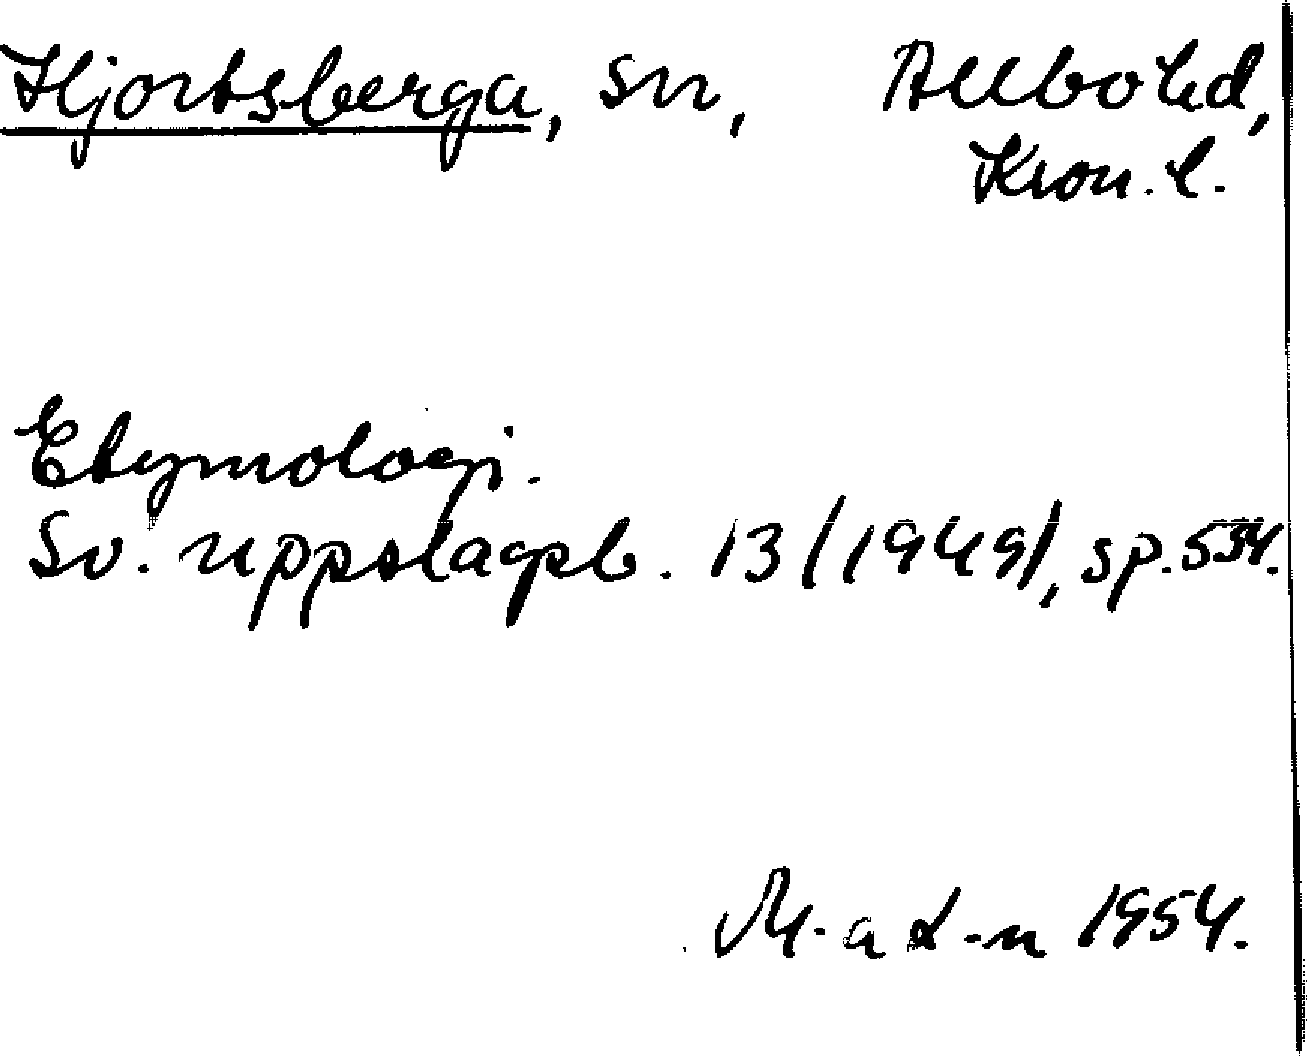 Hjortsberga, sn, Allbo hd,
Kron. l.
Etymologi.
Sv. uppslagsb. 13 (1949), sp. 534.
1954.